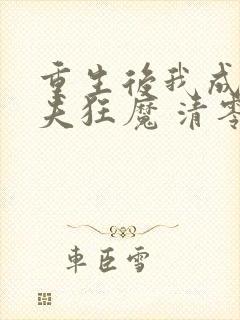 重生後我成
夫狂魔 清零
車臣雪